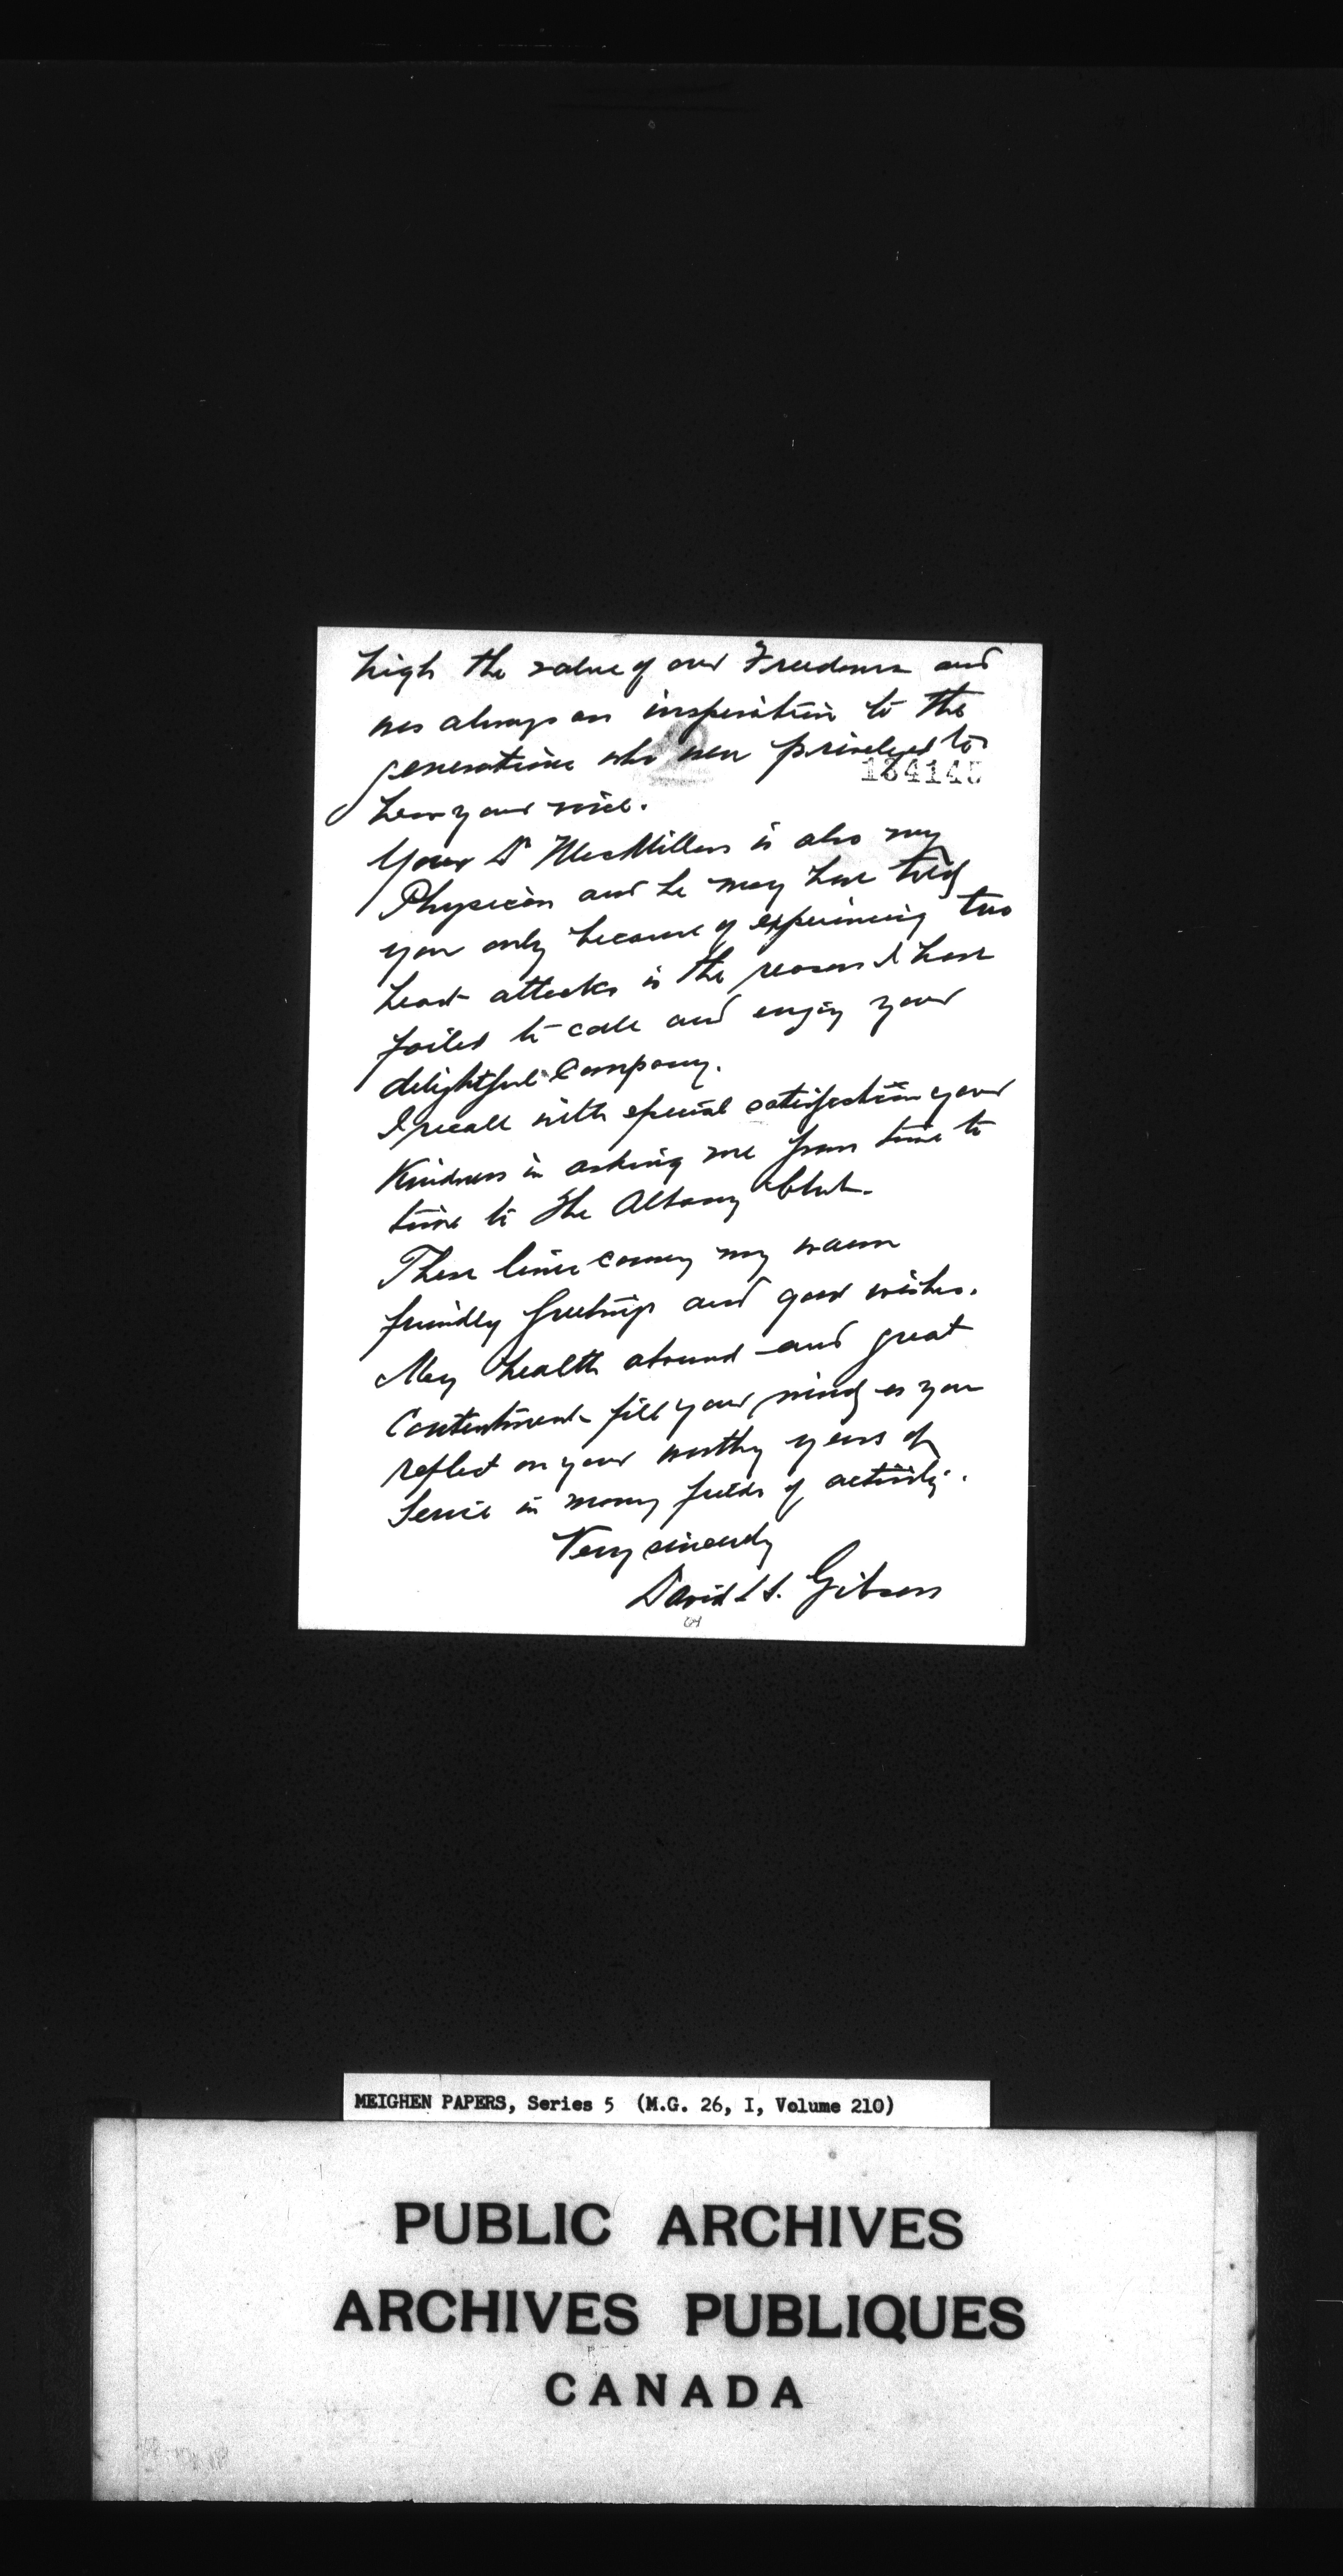 high the value of our Freedoms and
was always an inspiration to the
generations who were privileged to
134145
hear your voice.
Your Dr MacMillan is also my
Physician and he may have told
you only because of experiencing two
heart attacks is the reason I have
failed to call and enjoy your
delightful Company.
I recall with special satisfaction your
Kindness in asking me from time to
time to the Albany Club.
These lines convey my warm
friendly Greetings and good wishes.
May health abound and great
Contentment fill your mind as you
reflect on your worthy years of
Service in many fields of activity.
Very sincerely
David Gibson
MEIGHEN PAPERS, Series 5 (M.G. 26, I, Volume 210)
PUBLIC ARCHIVES
ARCHIVES PUBLIQUES
CANADA